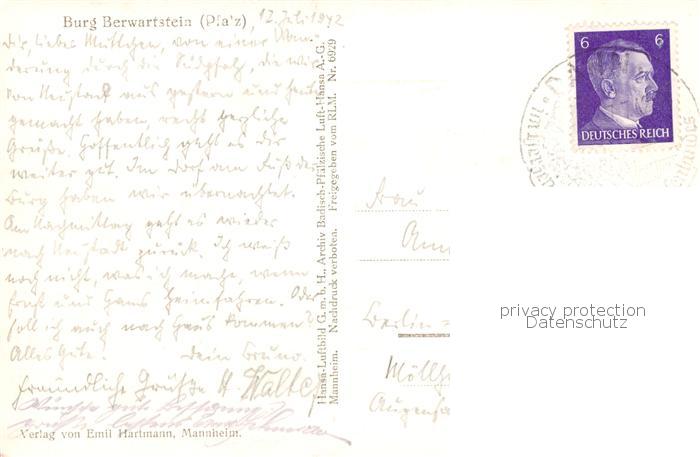 Burg Berwartstein (Pfalz), 12. Juli 1942
Dir, liebes Muttchen, von einer Wan-
derung durch die Südpfalz, die wir
von Neustadt aus gestern und heute
gemacht haben, recht herzliche
Grüße. Hoffentlich geht es dir
weiter gut. Im Dorf am Fuß der
Burg haben wir übernachtet.
Am Nachmittag geht es wieder
nach Neustadt zurück. Ich weiß
noch nicht, was ich mache, wenn
und Hans heimfahren. Oder
soll ich auch nach Haus kommen?
Alles Gute. Dein Bruno.
Freundliche Grüße Walter
Wünsche gute Besserung
Verlag von Emil Hartmann, Mannheim.
Hansa-Luftbild G.m.b.H. Archiv Badisch-Pfälzische Luft-Hansa A.-G.
Mannheim. Nachdruck verboten. Freigegeben vom RLM. Nr. 6929
6 6
DEUTSCHES REICH
Frau
Berlin-
privacy protection
Datenschutz